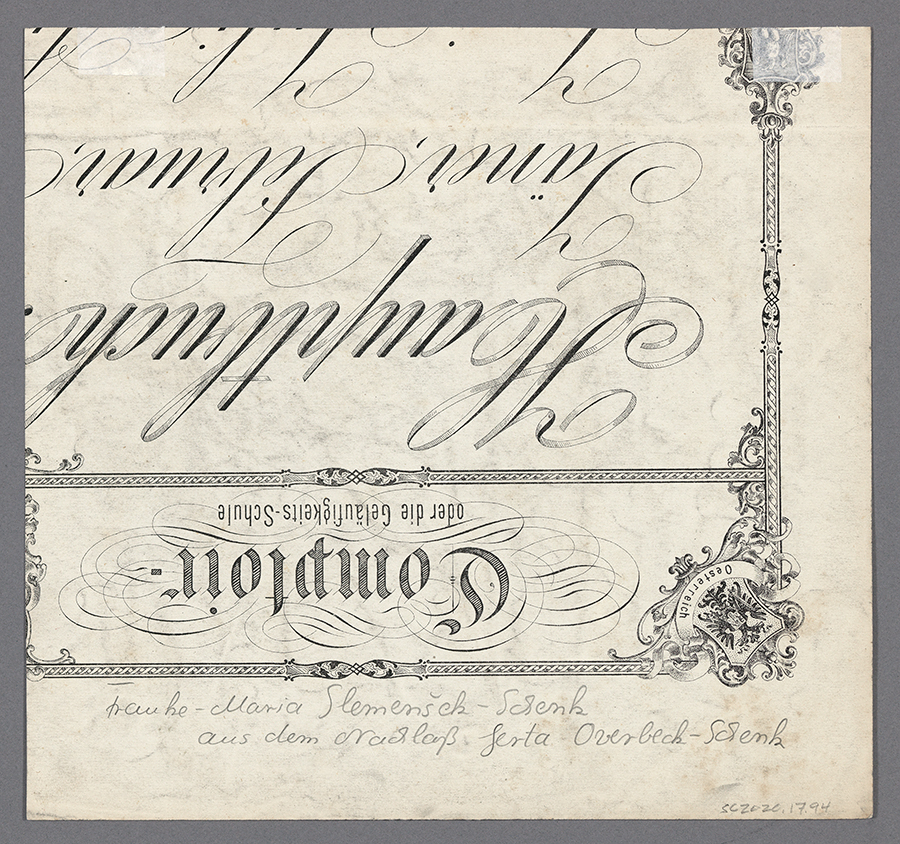 Oesterreich
Comptoir-
oder die Geläufigkeits-Schule
Hauptbuch.
Jäner, Februar,
Frauke-Maria Slemenšek-Schenk
aus dem Nachlaß Gerta Overbeck-Schenk
SC2020.17.94